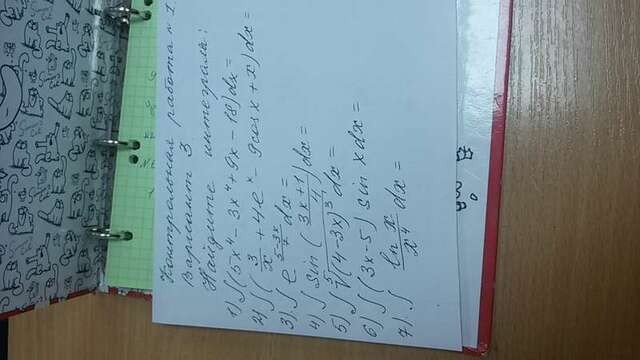 Контрольная работа n 1
Вариант 3.
Найдите интегралы:
1) ∫(5x⁴ - 3x⁴ + 9x - 18)dx =
2) ∫(3/x + 4e^x - 9cos x + x)dx =
3) ∫ e^(5-3x) dx =
4) ∫ sin((3x+1)/4)dx =
5) ∫ ⁵√(4-3x)³ dx =
6) ∫(3x-5) sin x dx =
7) ∫ ln x/x⁴ dx =